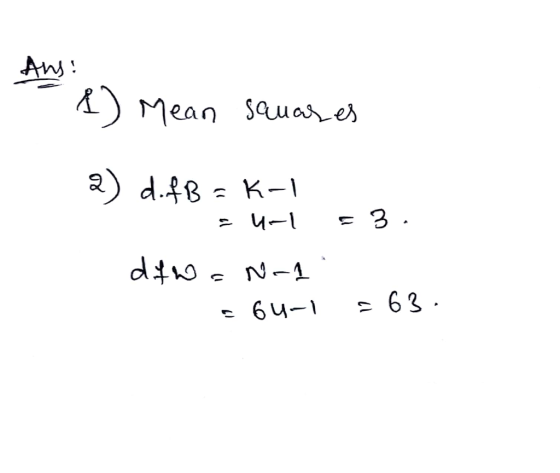 Ans:
1) Mean squares
2) d.fB = K-1
= 4-1 = 3.
dfW = N-1
= 64-1 = 63.